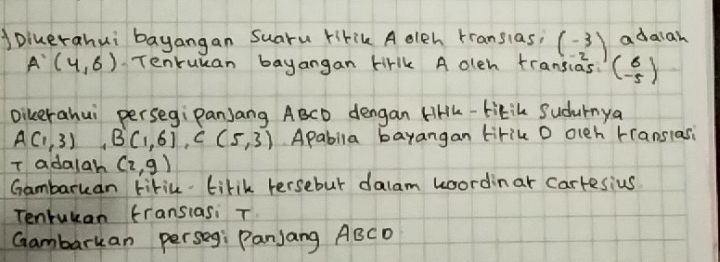 Diketahui bayangan suatu titik A oleh translasi (-3 -2) adalah
A' (4,6). Tentukan bayangan titik A oleh translasi (6 -5)
Diketahui persegi panjang ABCD dengan titik-titik sudutnya
A(1,3), B(1,6), C (5,3) Apabila bayangan titik D oleh translasi
T adalah (2,9)
Gambarkan titik-titik tersebut dalam koordinat cartesius.
Tentukan translasi T.
Gambarkan persegi Panjang ABCD